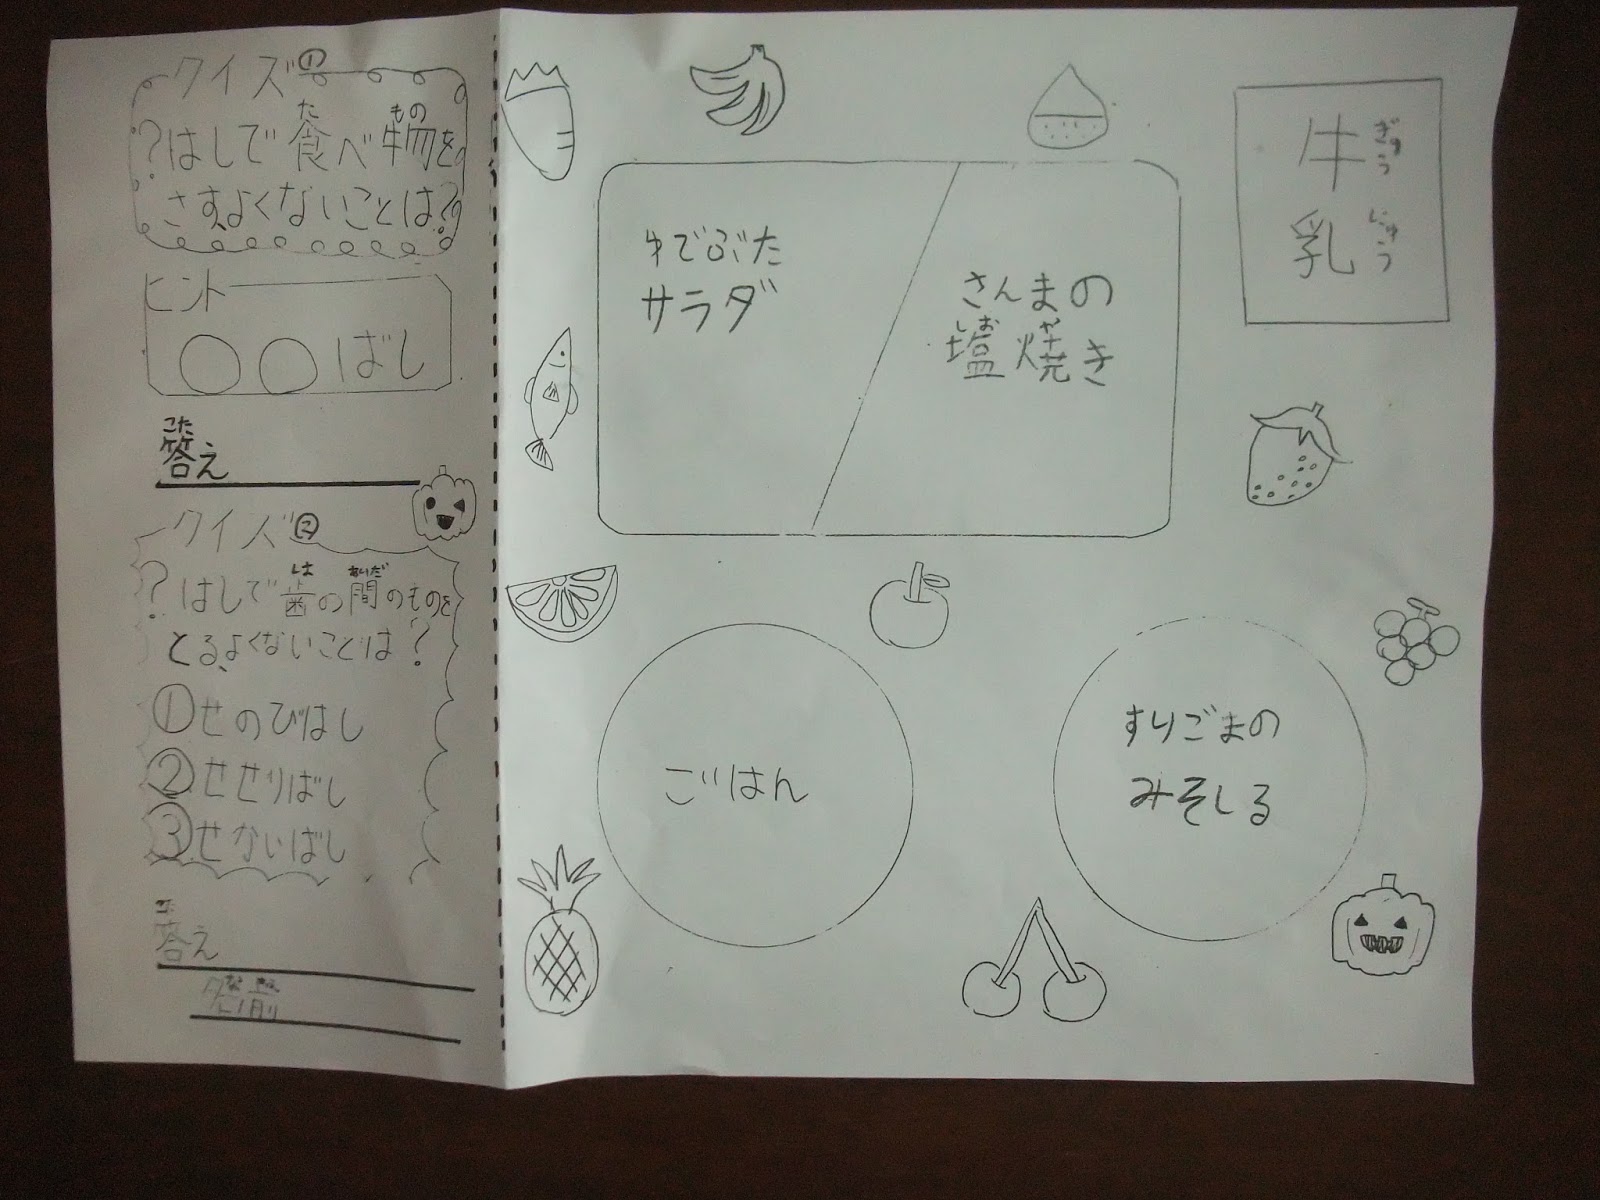 クイズ①
た もの
?はしで食べ物を
さす、よくないことは?
ヒント
○○ばし
こた
答え
クイズ②
は あいだ
?はしで歯の間のものを
とる、よくないことは?
①せのびばし
②せせりばし
③せかいばし
こた
答え
なまえ
名前
ゆでぶた
サラダ
さんまの
しお や
塩焼き
牛乳
ぎゅう
にゅう
ごはん
すりごまの
みそしる